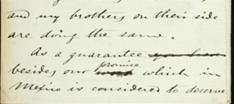 and my brothers on their side
are doing the same.
As a guarantee
besides our promise which in
is considered to deserve